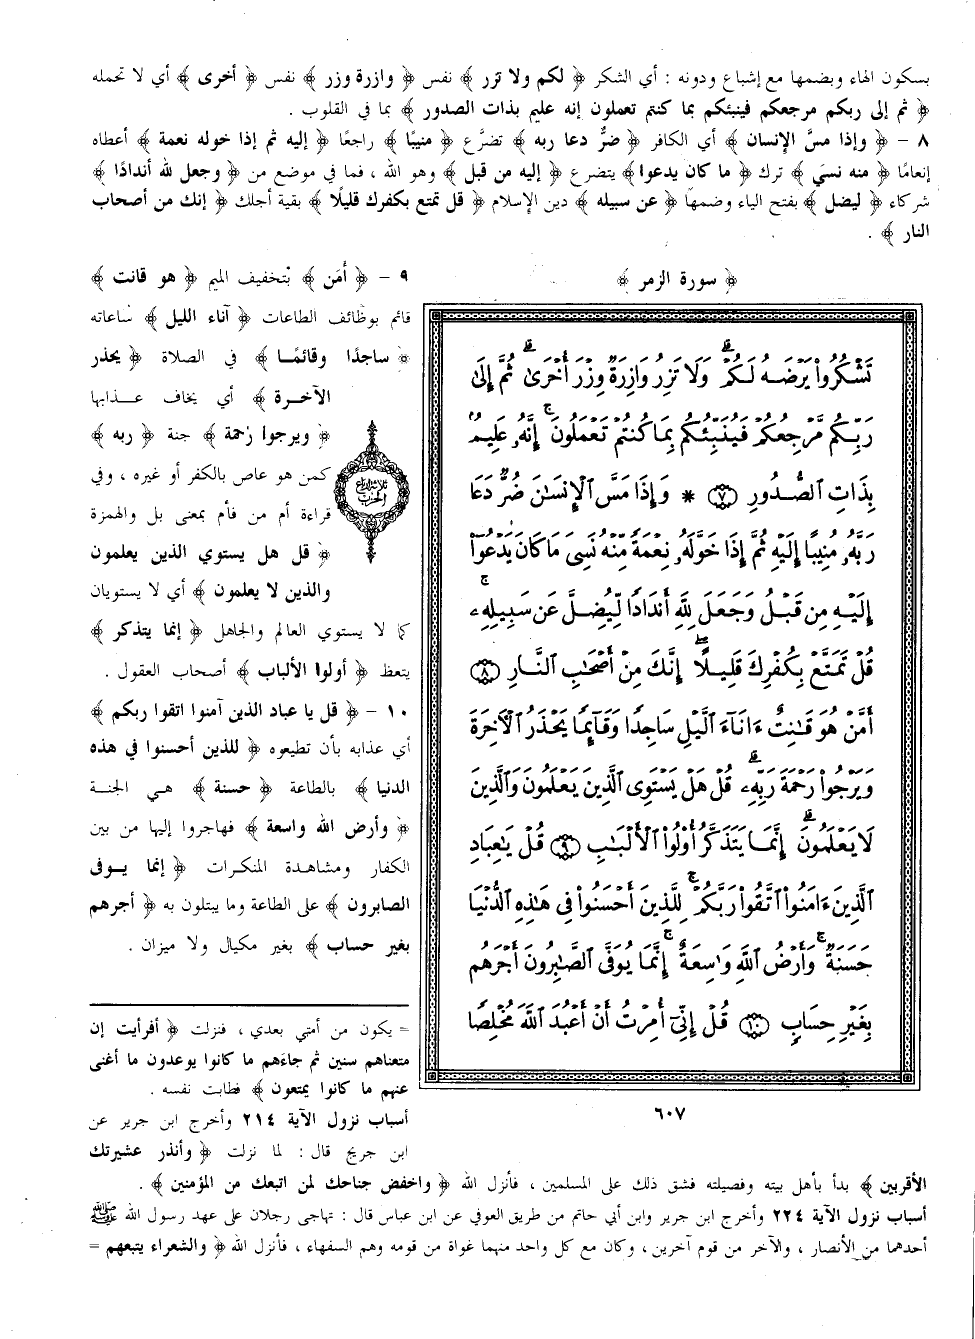 بسكون الهاء وبضمها مع إشباع ودونه : أي الشكر ﴿ لكم ولا تزر ﴾ نفس ﴿ وازرة وزر ﴾ نفس ﴿ أخرى ﴾ أي لا تحمله
﴿ ثم إلى ربكم مرجعكم فينبئكم بما كنتم تعملون إنه عليم بذات الصدور ﴾ بما في القلوب .
٨ - ﴿ وإذا مسَّ الإنسان ﴾ أي الكافر ﴿ ضرٌّ دعا ربه ﴾ تضرَّع ﴿ منيبًا ﴾ راجعًا ﴿ إليه ثم إذا خوله نعمة ﴾ أعطاه
إنعامًا ﴿ منه نسيَ ﴾ ترك ﴿ ما كان يدعوا﴾ يتضرع ﴿ إليه من قبل ﴾ وهو الله ، فما في موضع من ﴿ وجعل لله أندادًا ﴾
شركاء ﴿ ليضل ﴾ بفتح الياء وضمها ﴿ عن سبيله ﴾ دين الإسلام ﴿ قل تمتع بكفرك قليلًا ﴾ بقية أجلك ﴿ إنك من أصحاب
النار ﴾ .
﴿ سورة الزمر ﴾
تَشْكُرُوا۟ يَرْضَهُ لَكُمْ ۗ وَلَا تَزِرُ وَازِرَةٌ وِزْرَ أُخْرَىٰ ۗ ثُمَّ إِلَىٰ
رَبِّكُم مَّرْجِعُكُمْ فَيُنَبِّئُكُم بِمَا كُنتُمْ تَعْمَلُونَ ۚ إِنَّهُۥ عَلِيمٌۢ
بِذَاتِ ٱلصُّدُورِ ﴿٧﴾ * وَإِذَا مَسَّ ٱلْإِنسَٰنَ ضُرٌّ دَعَا
رَبَّهُۥ مُنِيبًا إِلَيْهِ ثُمَّ إِذَا خَوَّلَهُۥ نِعْمَةً مِّنْهُ نَسِىَ مَا كَانَ يَدْعُوٓا۟
إِلَيْهِ مِن قَبْلُ وَجَعَلَ لِلَّهِ أَندَادًا لِّيُضِلَّ عَن سَبِيلِهِۦ ۚ
قُلْ تَمَتَّعْ بِكُفْرِكَ قَلِيلًا ۖ إِنَّكَ مِنْ أَصْحَٰبِ ٱلنَّارِ ﴿٨﴾
أَمَّنْ هُوَ قَٰنِتٌ ءَانَآءَ ٱلَّيْلِ سَاجِدًا وَقَآئِمًا يَحْذَرُ ٱلْءَاخِرَةَ
وَيَرْجُوا۟ رَحْمَةَ رَبِّهِۦ ۗ قُلْ هَلْ يَسْتَوِى ٱلَّذِينَ يَعْلَمُونَ وَٱلَّذِينَ
لَا يَعْلَمُونَ ۗ إِنَّمَا يَتَذَكَّرُ أُو۟لُوا۟ ٱلْأَلْبَٰبِ ﴿٩﴾ قُلْ يَٰعِبَادِ
ٱلَّذِينَ ءَامَنُوا۟ ٱتَّقُوا۟ رَبَّكُمْ ۚ لِلَّذِينَ أَحْسَنُوا۟ فِى هَٰذِهِ ٱلدُّنْيَا
حَسَنَةٌ ۗ وَأَرْضُ ٱللَّهِ وَٰسِعَةٌ ۗ إِنَّمَا يُوَفَّى ٱلصَّٰبِرُونَ أَجْرَهُم
بِغَيْرِ حِسَابٍ ﴿١٠﴾ قُلْ إِنِّىٓ أُمِرْتُ أَنْ أَعْبُدَ ٱللَّهَ مُخْلِصًا
٦٠٧
٩ - ﴿ أَمَن ﴾ بتخفيف الميم ﴿ هو قانت ﴾
قائم بوظائف الطاعات ﴿ آناء الليل ﴾ ساعاته
﴿ ساجدًا وقائمًا ﴾ في الصلاة ﴿ يحذر
الآخرة ﴾ أي يخاف عذابها
﴿ ويرجوا رَحمة ﴾ جنة ﴿ ربه ﴾
كمن هو عاص بالكفر أو غيره ، وفي
قراءة أم من فأم بمعنى بل والهمزة
﴿ قل هل يستوي الذين يعلمون
والذين لا يعلمون ﴾ أي لا يستويان
كما لا يستوي العالم والجاهل ﴿ إنما يتذكر ﴾
يتعظ ﴿ أولوا الألباب ﴾ أصحاب العقول .
١٠ - ﴿ قل يا عباد الذين آمنوا اتقوا ربكم ﴾
أي عذابه بأن تطيعوه ﴿ للذين أحسنوا في هذه
الدنيا ﴾ بالطاعة ﴿ حسنة ﴾ هي الجنة
﴿ وأرض الله واسعة ﴾ فهاجروا إليها من بين
الكفار ومشاهدة المنكرات ﴿ إنما يوفى
الصابرون ﴾ على الطاعة وما يبتلون به ﴿ أجرهم
بغير حساب ﴾ بغير مكيال ولا ميزان .
= يكون من أمتي بعدي ، فنزلت ﴿ أفرأيت إن
متعناهم سنين ثم جاءَهم ما كانوا يوعدون ما أغنى
عنهم ما كانوا يمتعون ﴾ فطابت نفسه .
أسباب نزول الآية ٢١٤ وأخرج ابن جرير عن
ابن جريج قال : لما نزلت ﴿ وأنذر عشيرتك
الأقربين ﴾ بدأ بأهل بيته وفصيلته فشق ذلك على المسلمين ، فأنزل الله ﴿ واخفض جناحك لمن اتبعك من المؤمنين ﴾ .
أسباب نزول الآية ٢٢٤ وأخرج ابن جرير وابن أبي حاتم من طريق العوفي عن ابن عباس قال : تهاجى رجلان على عهد رسول الله ﷺ
أحدهما من الأنصار ، والآخر من قوم آخرين ، وكان مع كل واحد منهما غواة من قومه وهم السفهاء ، فأنزل الله ﴿ والشعراء يتبعهم =